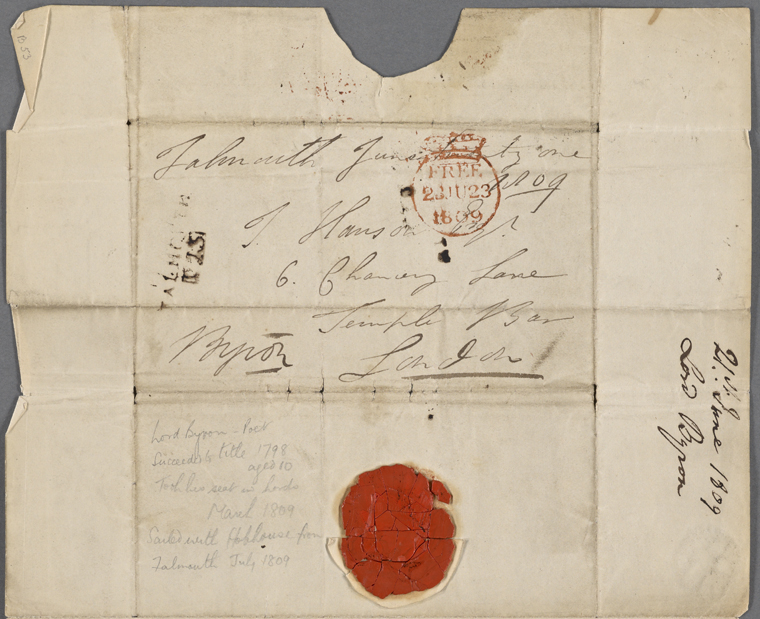 B53
Falmouth June twenty one
1809
FREE
23 JU 23
1809
J. Hanson Esqr.
6. Chancery Lane
Temple Bar
Byron
London
FALMOUTH
21st. June 1809
Lord Byron
Lord Byron - Poet
Succeeded to title 1798
aged 10
Took his seat in Lords
March 1809
Sailed with Hobhouse from
Falmouth July 1809